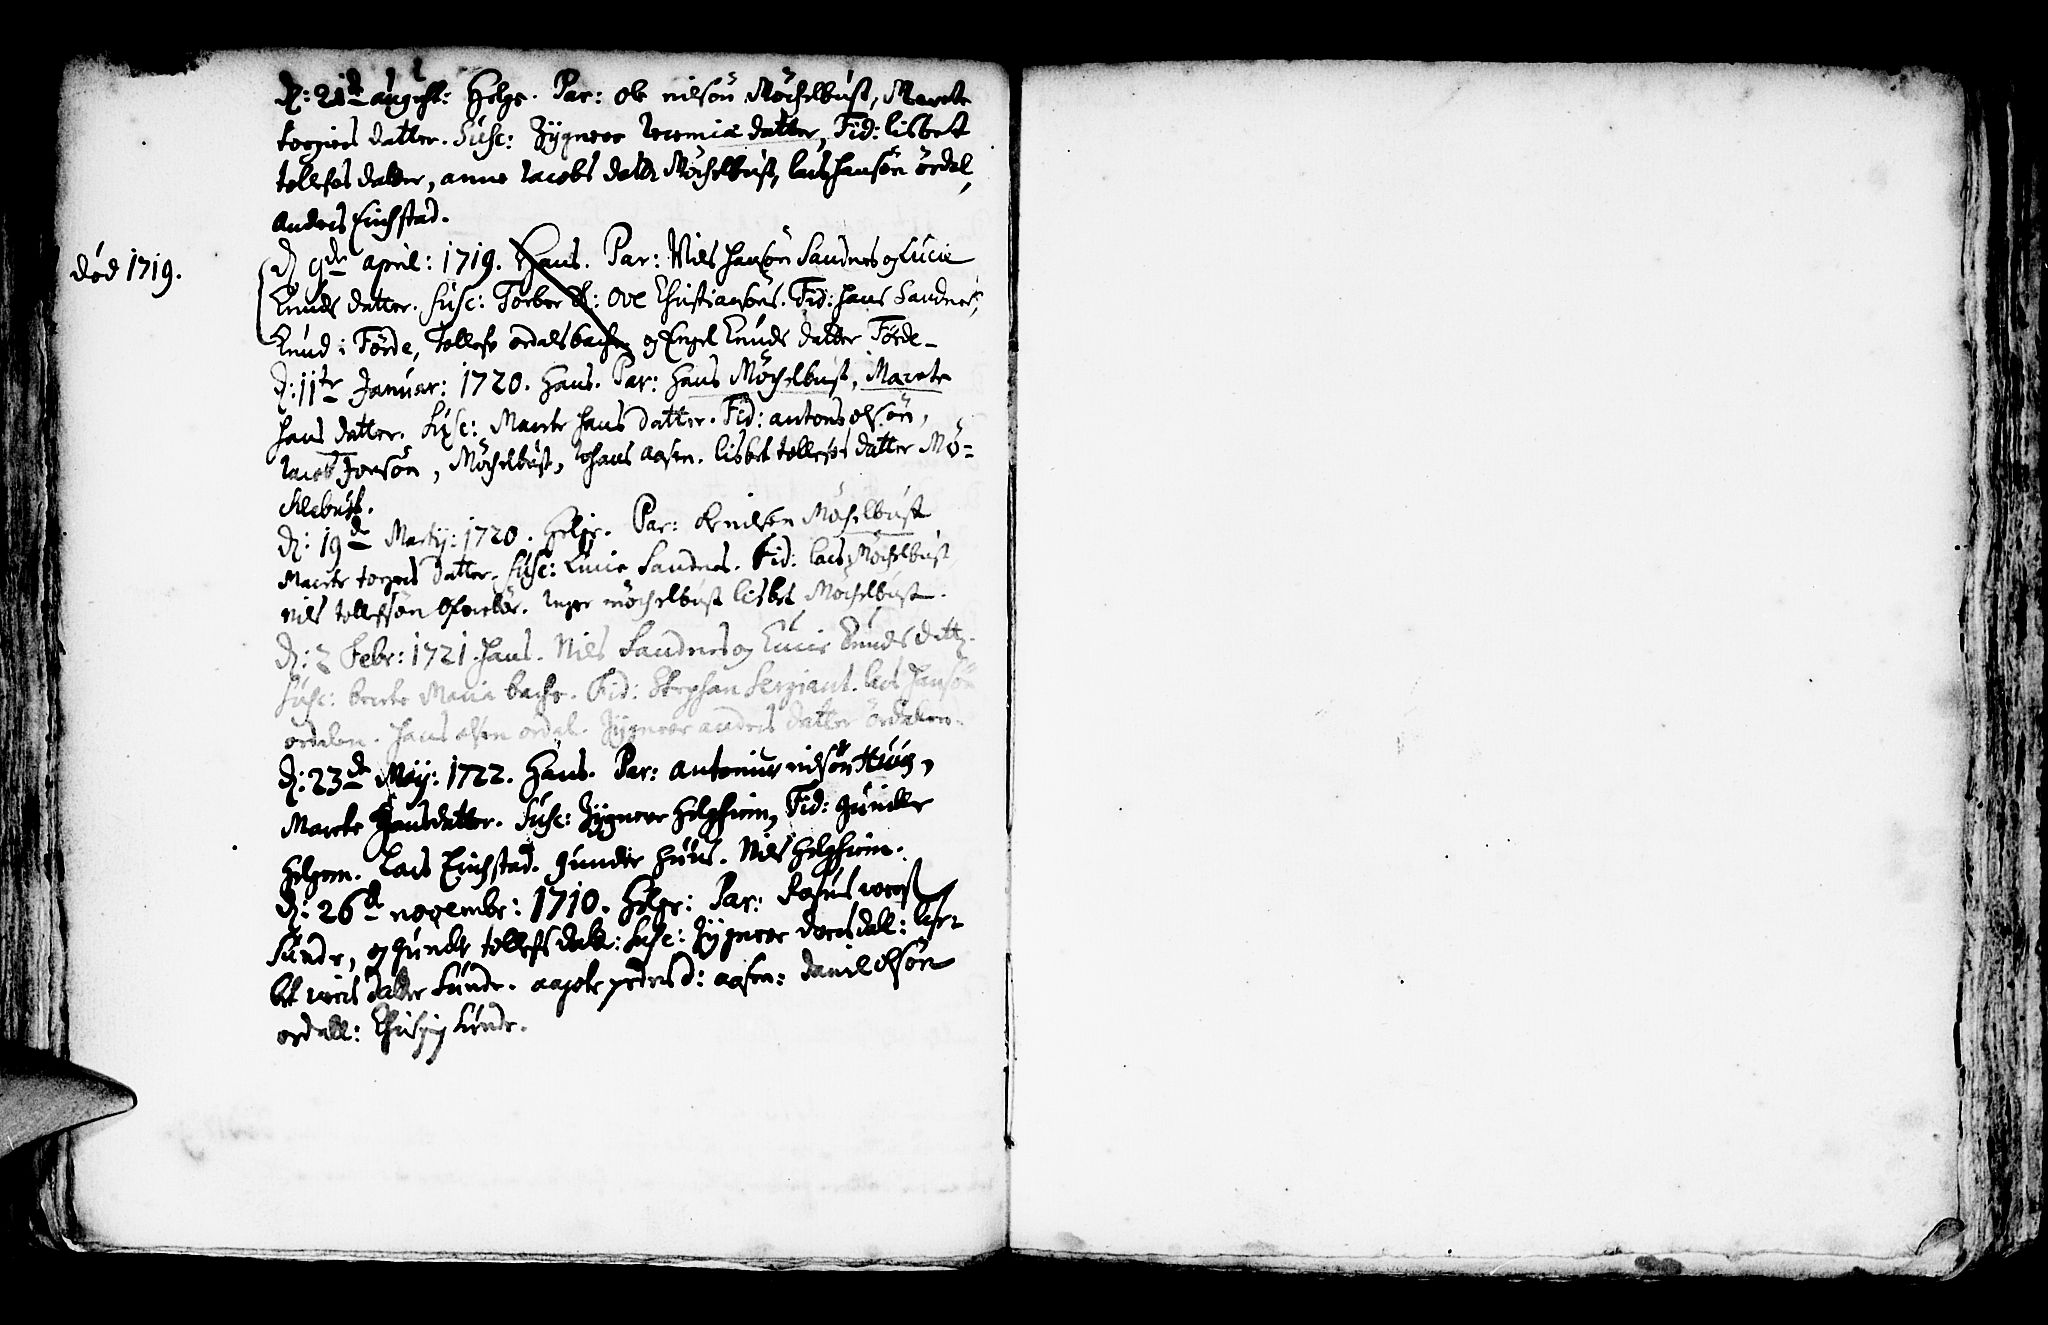 d: 21de august: Helge. Par: ole nilsön Möchelbust, Marete
torgiers datter. Susc: Zÿgneor datter, Fid: lisbet
tollefs datter, anne Jacobs datter Möchelbust, lars hansön ördal,
anders Eichstad.
død 1719.
d 9de april: 1719. Hans. Par: Nils hansön Sandnes og Lucie
Knuds datter. Susc: Torber Ove Christiansöns. Fid: hans Sandnes,
Knud i Förde, tollefs ordals og Engel Knuds datter Förde-
d: 11te Januar: 1720. Hans. Par: Hans Möchelbust, Marete
hans datter. Susc: Marete hans datter. Fid: antons olsön,
Jacob Jonsön, Möchelbust, Johans aasen. lisbet tollefs datter Mö-
chlebust.
d: 19de Martij: 1720. Helge. Par: ole nilsen Möchelbust
Marete torgers datter. Susc: Lucie Sandnes. Fid: lars Möchelbust
nils tollefsön Inger möchelbust lisbet Möchelbust.
d: 2 Febr: 1721. hans. Nils Sandnes og Lucie Knuds datter.
Susc: bente Maria bache. Fid: Stephan Sergiant. lars hansön
ordalen. hans olsen ordal. Zÿgneor anders datter ördalen.
d: 23de Maij: 1722. Hans. Par: antonius nilsön Huus,
Marete Hansdatter. Susc: Zÿgneor Helgheim, Fid: gunder
Helgem. Lars Eichstad. gunder huus. Nils Helgheim.
d: 26de novembr: 1710. Helge: Par: Rasmus
Sunde, og gunder tollefs datter: Susc: Zÿgneor dall: lis-
bet datter Sunde. aagote peders d: aasen: daniel olsön
ordall: Sunde.